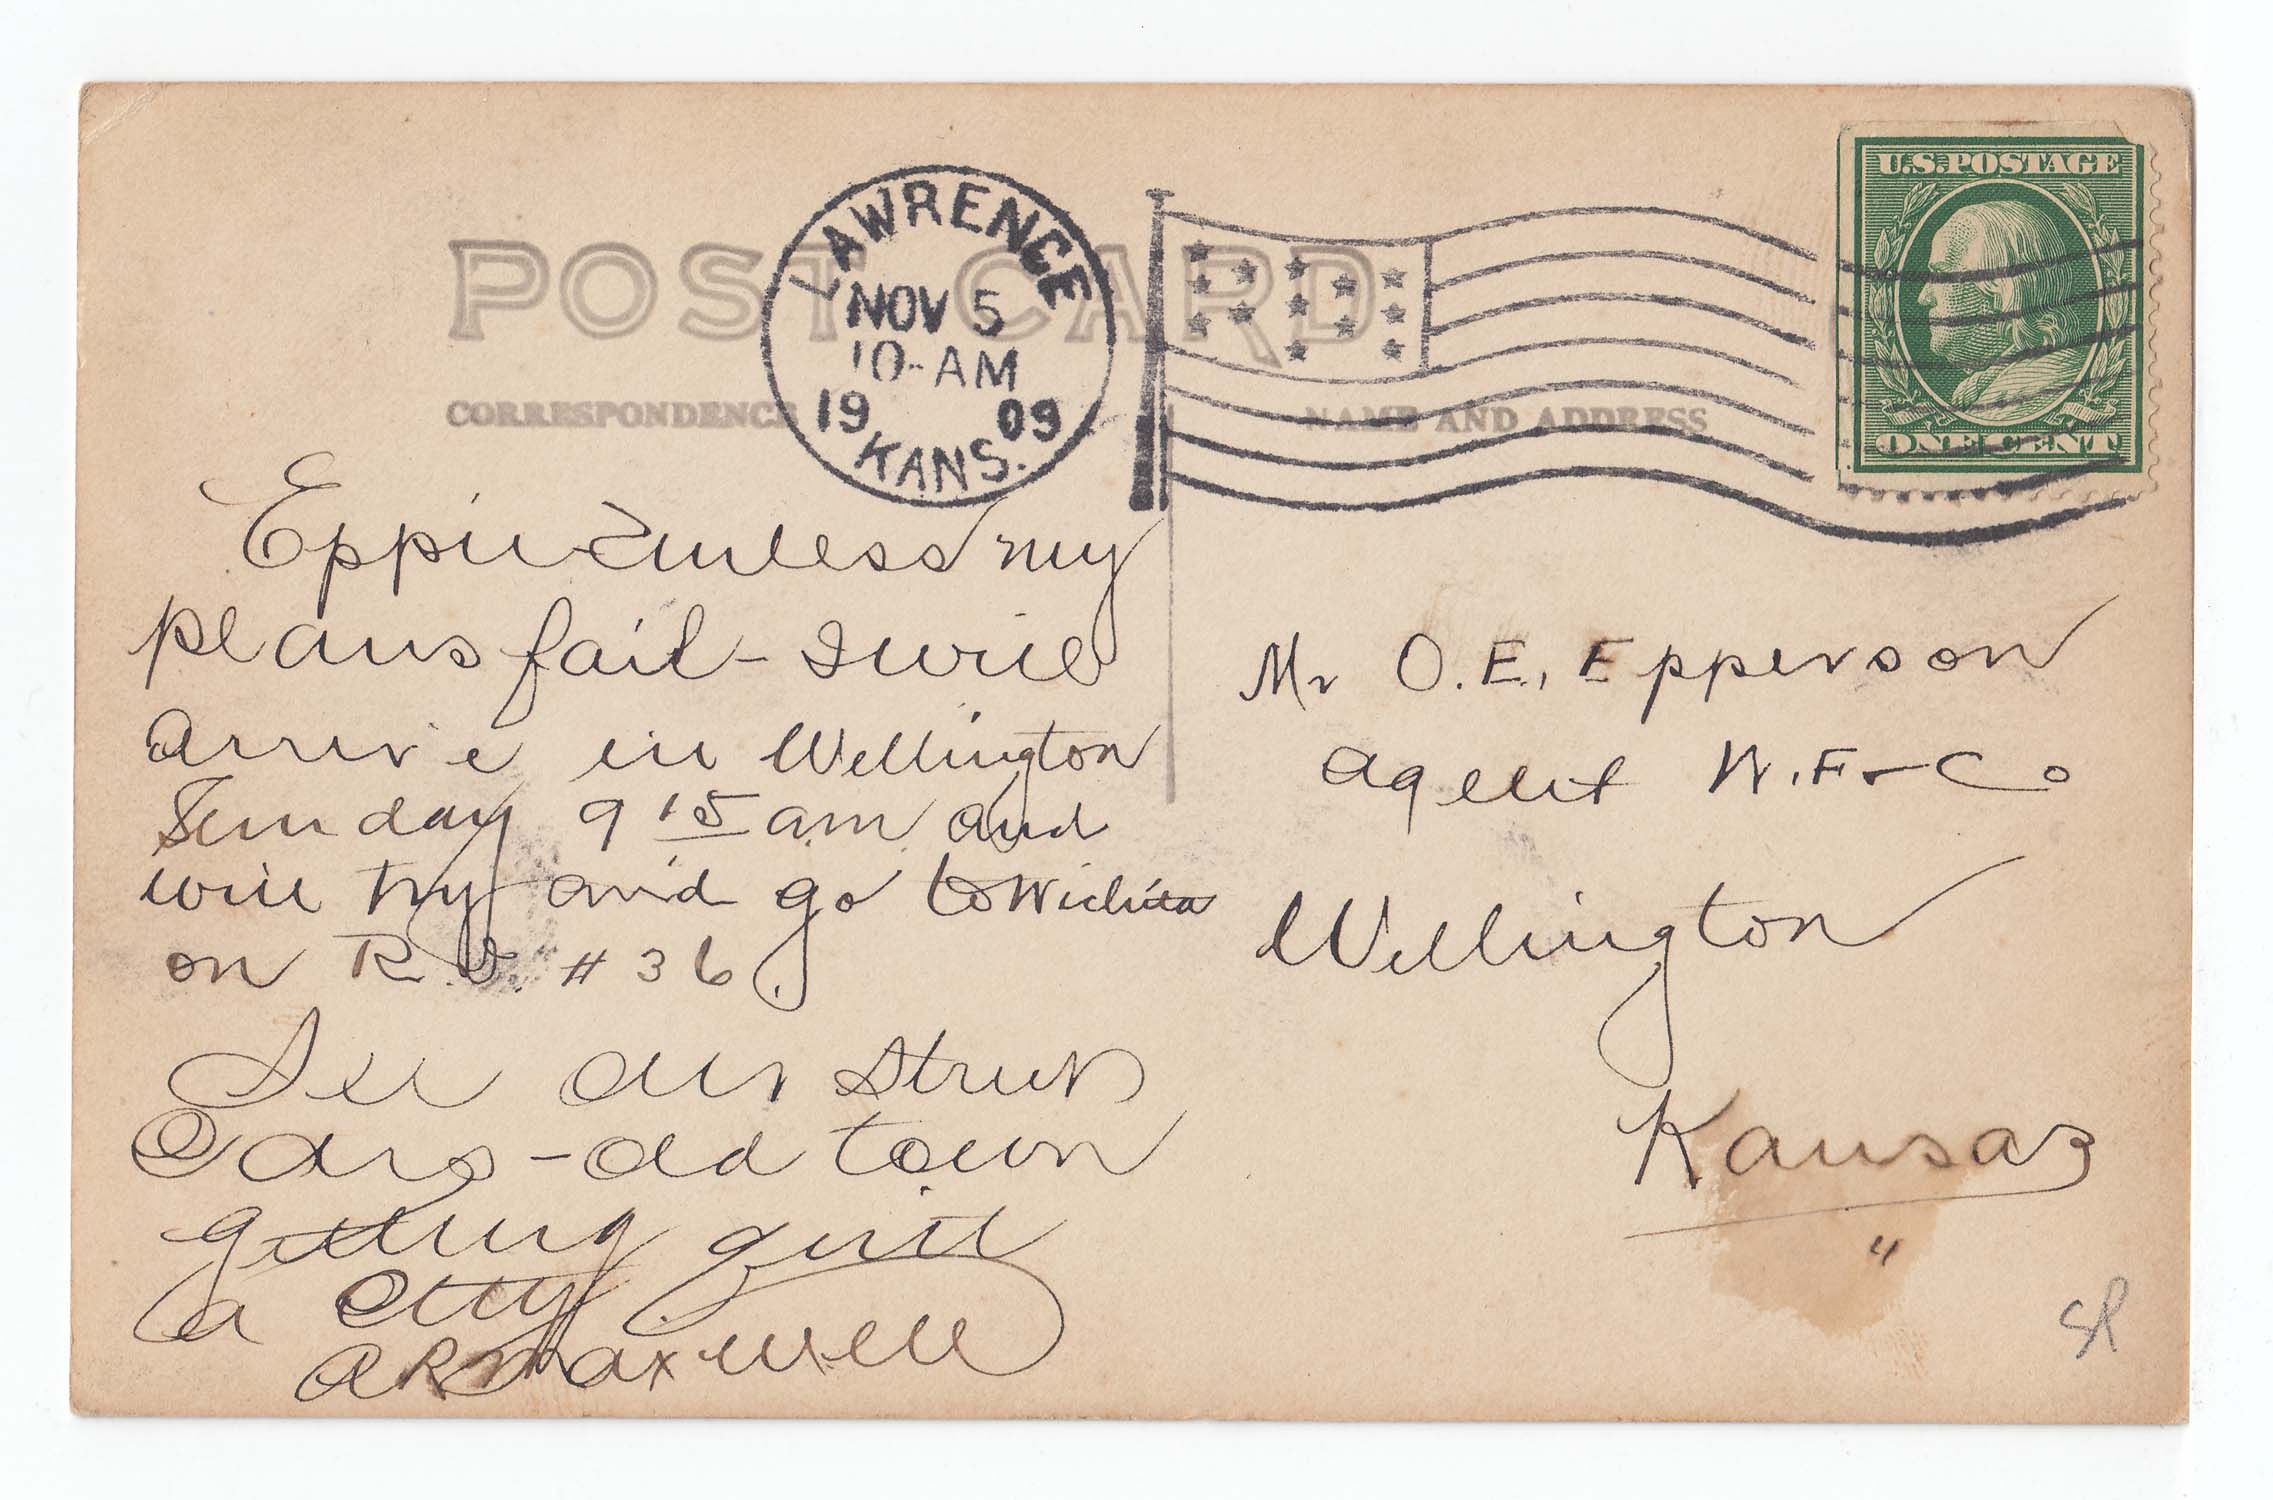 POST CARD
CORRESPONDENCE
NAME AND ADDRESS
LAWRENCE
NOV 5
10-AM
19 09
KANS.
U.S. POSTAGE
ONE CENT
Eppie - unless my
plans fail - I will
arrive in Wellington
Sunday 9 15 am and
will try and go to Wichita
on R.I. #36.
See our street
Cars - old town
getting quite
a city
A R Maxwell
Mr O. E. Epperson
agent W. F. & Co
Wellington
Kansas
"